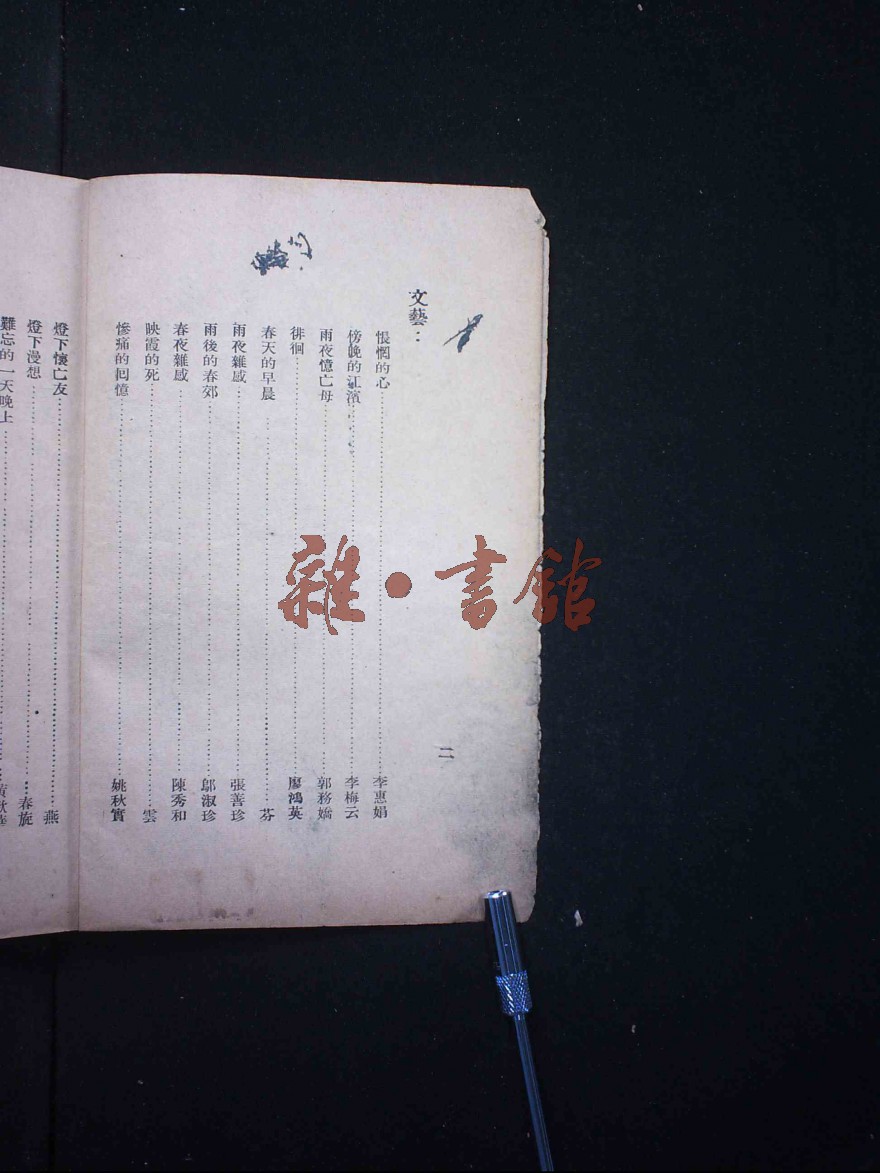 文藝：
悵惘的心……李惠娟
傍晚的江濱……李梅云
雨夜憶亡母……郭務嬌
徘徊……廖鴻英
春天的早晨……芬
雨夜雜感……張善珍
雨後的春郊……鄔淑珍
春夜雜感……陳秀和
映霞的死……雲
慘痛的囘憶……姚秋實
二
燈下懷亡友……燕
燈下漫想……春旎
難忘的一天晚上……黃
雜·書館